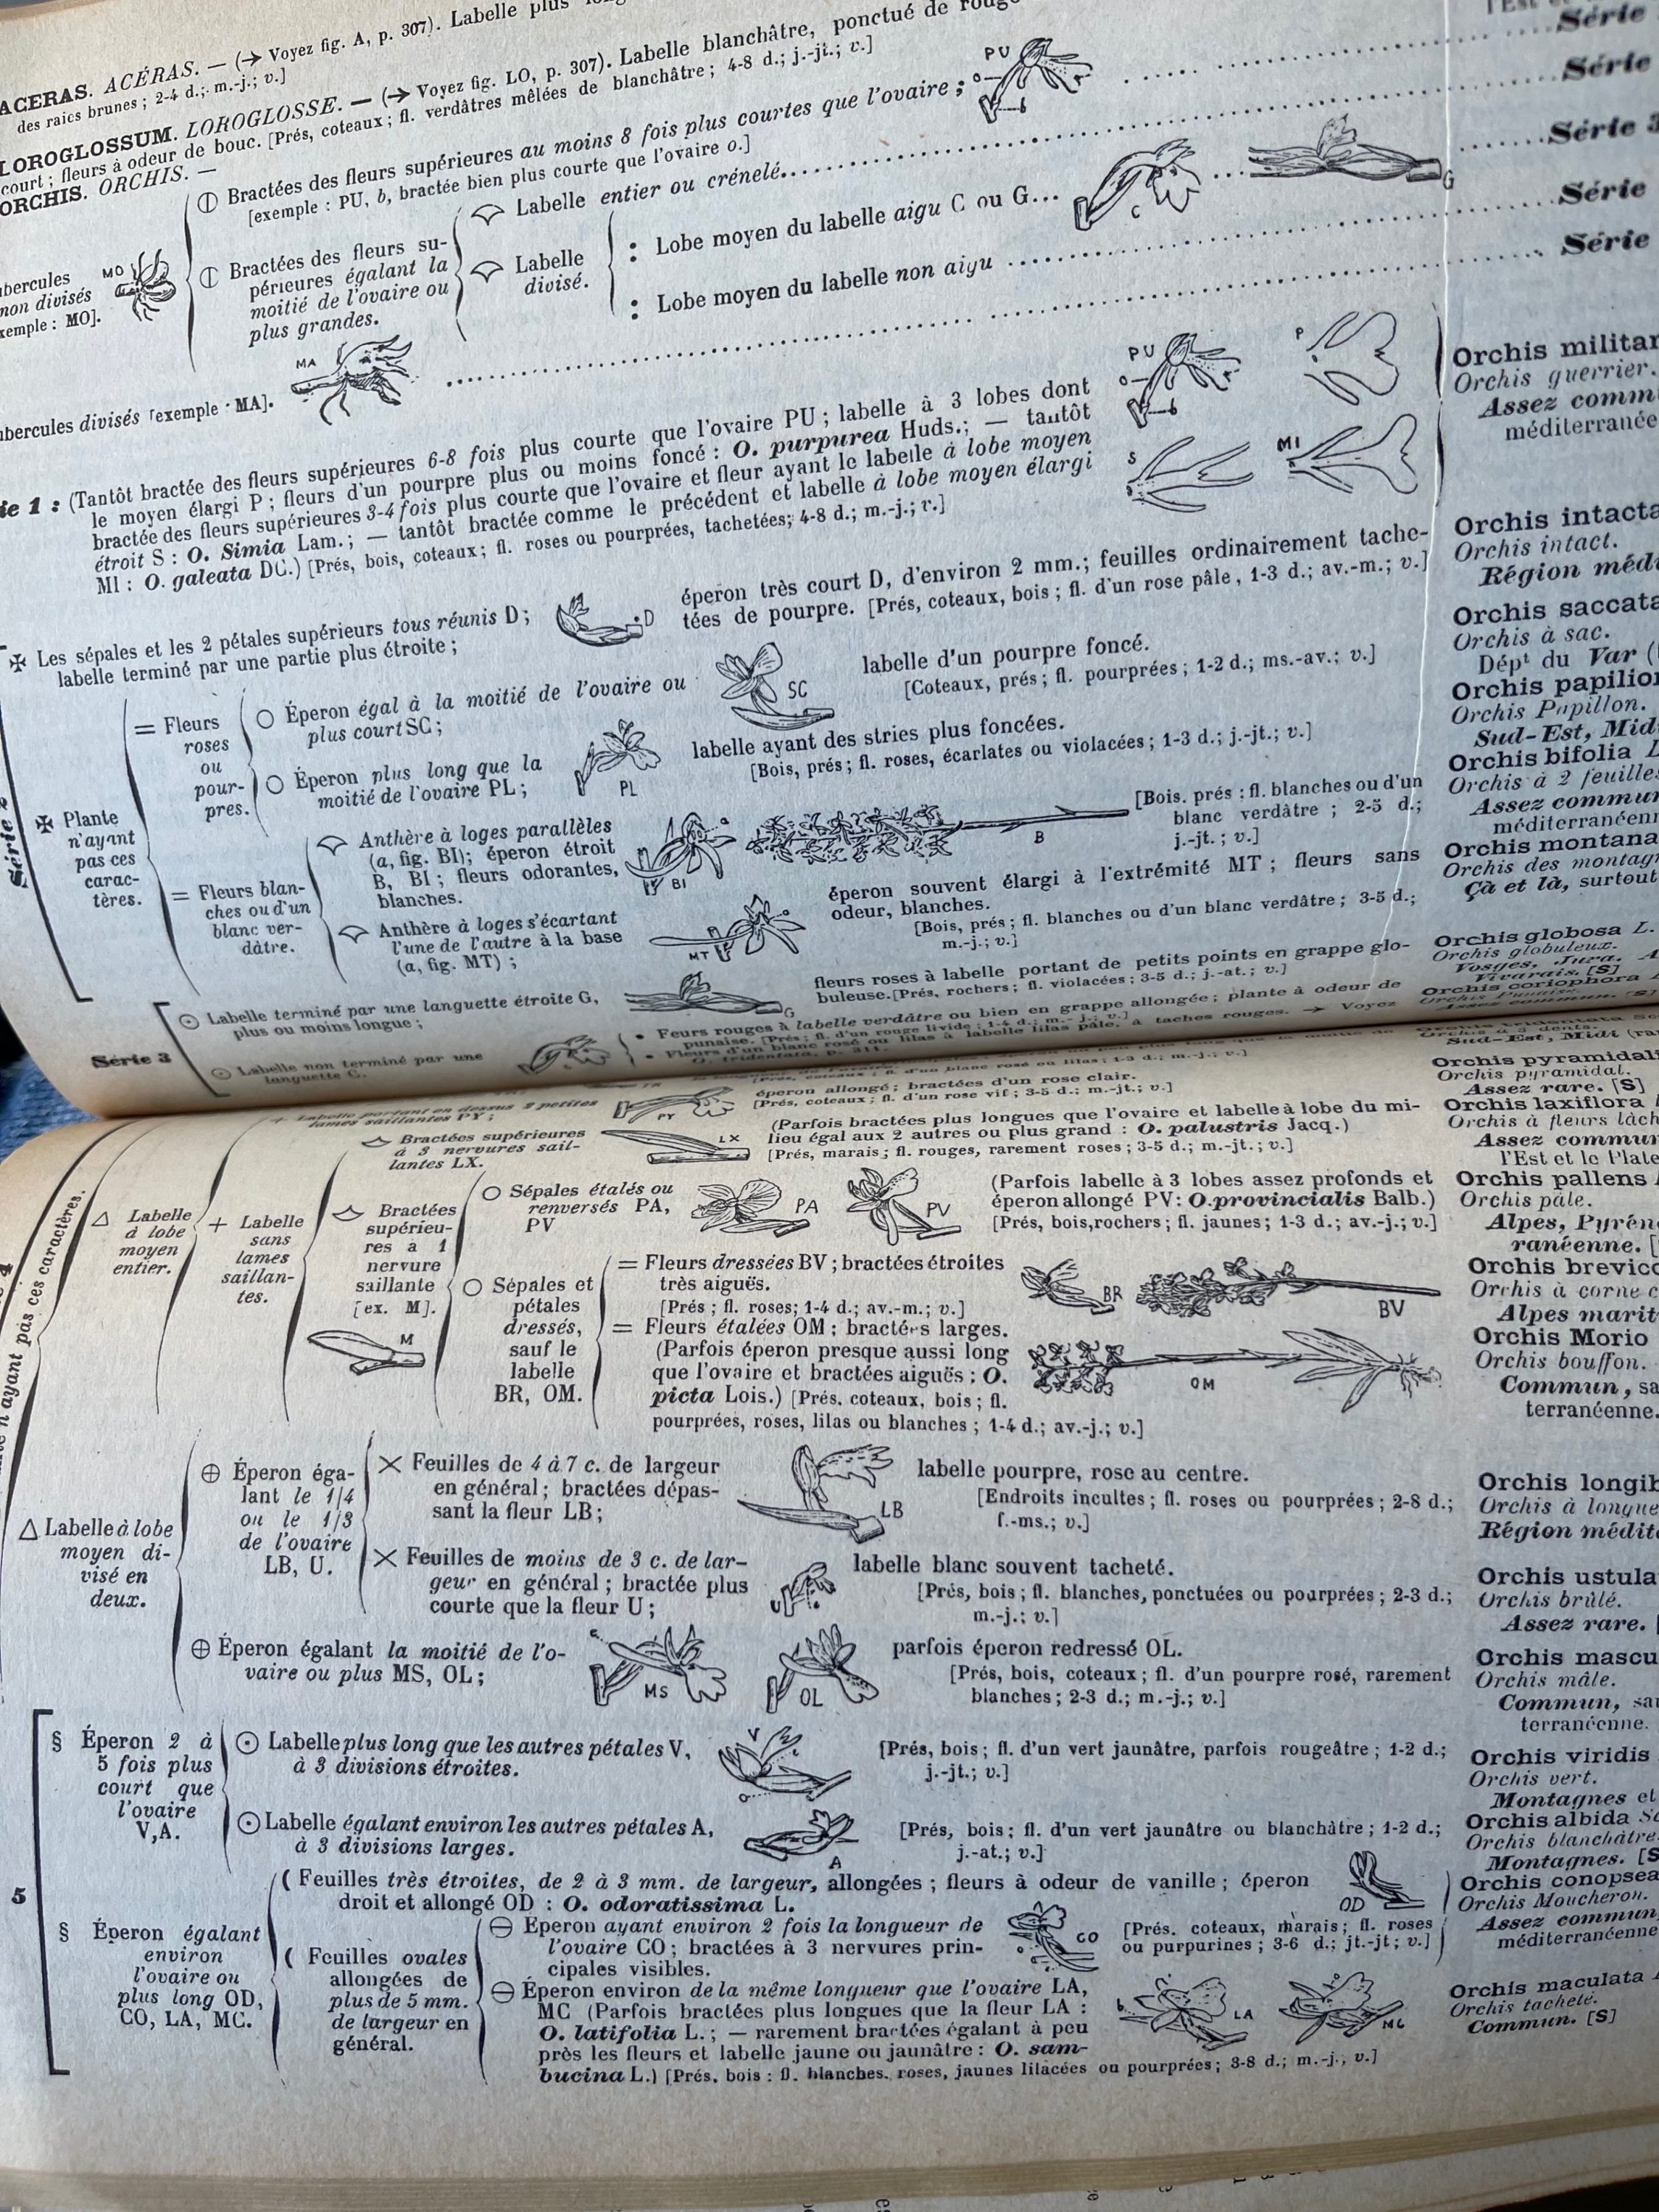 ACERAS. ACÉRAS. — (→ Voyez fig. A, p. 307). Labelle plus
des raies brunes ; 2-4 d.; m.-j.; v.]
LOROGLOSSUM. LOROGLOSSE. — (→ Voyez fig. LO, p. 307). Labelle blanchâtre, ponctué de
court ; fleurs à odeur de bouc. [Prés, coteaux ; fl. verdâtres mêlées de blanchâtre ; 4-8 d.; j.-jt.; v.]
ORCHIS. ORCHIS. —
⏀ Bractées des fleurs supérieures au moins 8 fois plus courtes que l'ovaire ;
[exemple : PU, b, bractée bien plus courte que l'ovaire o.]
PU
o
b
Série
MO
non divisés
MO].
⏀ Bractées des fleurs su-
périeures égalant la
moitié de l'ovaire ou
plus grandes.
Labelle entier ou crénelé
Série
Labelle
divisé.
: Lobe moyen du labelle aigu C ou G...
C
G
Série 3
: Lobe moyen du labelle non aigu
Série
divisés [exemple : MA].
MA
Série
1 : (Tantôt bractée des fleurs supérieures 6-8 fois plus courte que l'ovaire PU ; labelle à 3 lobes dont
le moyen élargi P ; fleurs d'un pourpre plus ou moins foncé : O. purpurea Huds.; — tantôt
bractée des fleurs supérieures 3-4 fois plus courte que l'ovaire et fleur ayant le labelle à lobe moyen
étroit S : O. Simia Lam.; — tantôt bractée comme le précédent et labelle à lobe moyen élargi
MI : O. galeata DC.) [Prés, bois, coteaux ; fl. roses ou pourprées, tachetées; 4-8 d.; m.-j.; r.]
PU
o
b
P
S
MI
Orchis
Orchis guerrier.
Assez
✠ Les sépales et les 2 pétales supérieurs tous réunis D ;
labelle terminé par une partie plus étroite ;
D
éperon très court D, d'environ 2 mm.; feuilles ordinairement tache-
tées de pourpre. [Prés, coteaux, bois ; fl. d'un rose pâle, 1-3 d.; av.-m.; v.]
Orchis intacta
Orchis intact.
Région
✠ Plante
n'ayant
pas ces
carac-
tères.
= Fleurs
roses
ou
pour-
pres.
○ Éperon égal à la moitié de l'ovaire ou
plus court SC ;
SC
labelle d'un pourpre foncé.
[Coteaux, prés ; fl. pourprées ; 1-2 d.; ms.-av.; v.]
Orchis saccata
Orchis à sac.
Dépt du Var
○ Éperon plus long que la
moitié de l'ovaire PL ;
PL
labelle ayant des stries plus foncées.
[Bois, prés ; fl. roses, écarlates ou violacées ; 1-3 d.; j.-jt.; v.]
Orchis
Orchis Papillon.
Sud-Est,
= Fleurs blan-
ches ou d'un
blanc ver-
dâtre.
Anthère à loges parallèles
(a, fig. BI); éperon étroit
B, BI ; fleurs odorantes,
blanches.
BI
B
[Bois. prés : fl. blanches ou d'un
blanc verdâtre ; 2-5 d.;
j.-jt. ; v.]
Orchis bifolia
Orchis à 2
Assez
Anthère à loges s'écartant
l'une de l'autre à la base
(a, fig. MT) ;
MT
éperon souvent élargi à l'extrémité MT ; fleurs sans
odeur, blanches.
[Bois, prés ; fl. blanches ou d'un blanc verdâtre ; 3-5 d.;
m.-j.; v.]
Orchis montana
Orchis des
Çà et là, surtout
Série 3
⊙ Labelle terminé par une languette étroite G,
plus ou moins longue ;
G
fleurs roses à labelle portant de petits points en grappe glo-
buleuse. [Prés, rochers ; fl. violacées ; 3-5 d.; j.-at.; v.]
Orchis globosa L.
Orchis globuleux.
Vosges, Jura.
Vivarais. [S]
⊙ Labelle non terminé par une
languette C.
• Feurs rouges à labelle verdâtre ou bien en grappe allongée ; plante à odeur de
punaise. [Prés ; fl. d'un rouge livide ; 1-4 d.; m.-j.; v.]
• Fleurs d'un blanc rosé ou lilas à labelle lilas pâle, à taches rouges. → Voyez
Orchis coriophora
éperon allongé ; bractées d'un rose clair.
[Prés, coteaux ; fl. d'un rose vif ; 3-5 d.; m.-jt.; v.]
+ Labelle portant en dessus 2 petites
lames saillantes PY ;
PY
Orchis
Orchis pyramidal.
Assez rare. [S]
n'ayant pas ces caractères.
△ Labelle
à lobe
moyen
entier.
+ Labelle
sans
lames
saillan-
tes.
Bractées supérieures
à 3 nervures sail-
lantes LX.
LX
(Parfois bractées plus longues que l'ovaire et labelle à lobe du mi-
lieu égal aux 2 autres ou plus grand : O. palustris Jacq.)
[Prés, marais ; fl. rouges, rarement roses ; 3-5 d.; m.-jt.; v.]
Orchis laxiflora
Orchis à fleurs
Assez
l'Est et le
Bractées
supérieu-
res a 1
nervure
saillante
[ex. M].
M
○ Sépales étalés ou
renversés PA,
PV
PA
PV
(Parfois labelle à 3 lobes assez profonds et
éperon allongé PV : O. provincialis Balb.)
[Prés, bois, rochers ; fl. jaunes ; 1-3 d.; av.-j.; v.]
Orchis pallens
Orchis pâle.
Alpes,
○ Sépales et
pétales
dressés,
sauf le
labelle
BR, OM.
= Fleurs dressées BV ; bractées étroites
très aiguës.
[Prés ; fl. roses; 1-4 d.; av.-m.; v.]
BR
BV
Orchis
Orchis à corne
Alpes
= Fleurs étalées OM ; bractées larges.
(Parfois éperon presque aussi long
que l'ovaire et bractées aiguës : O.
picta Lois.) [Prés. coteaux, bois ; fl.
pourprées, roses, lilas ou blanches ; 1-4 d.; av.-j.; v.]
OM
Orchis Morio
Orchis bouffon.
Commun,
△ Labelle à lobe
moyen di-
visé en
deux.
⊕ Éperon éga-
lant le 1/4
ou le 1/3
de l'ovaire
LB, U.
× Feuilles de 4 à 7 c. de largeur
en général ; bractées dépas-
sant la fleur LB ;
LB
labelle pourpre, rose au centre.
[Endroits incultes ; fl. roses ou pourprées ; 2-8 d.;
f.-ms.; v.]
Orchis
Orchis à
Région
× Feuilles de moins de 3 c. de lar-
geur en général ; bractée plus
courte que la fleur U ;
U
labelle blanc souvent tacheté.
[Prés, bois ; fl. blanches, ponctuées ou pourprées ; 2-3 d.;
m.-j.; v.]
Orchis
Orchis brûlé.
Assez rare.
⊕ Éperon égalant la moitié de l'o-
vaire ou plus MS, OL ;
MS
OL
parfois éperon redressé OL.
[Prés, bois, coteaux ; fl. d'un pourpre rosé, rarement
blanches ; 2-3 d.; m.-j.; v.]
Orchis
Orchis mâle.
Commun,
5
§ Éperon 2 à
5 fois plus
court que
l'ovaire
V, A.
⊙ Labelle plus long que les autres pétales V,
à 3 divisions étroites.
V
[Prés, bois ; fl. d'un vert jaunâtre, parfois rougeâtre ; 1-2 d.;
j.-jt.; v.]
Orchis viridis
Orchis vert.
Montagnes et
⊙ Labelle égalant environ les autres pétales A,
à 3 divisions larges.
A
[Prés, bois ; fl. d'un vert jaunâtre ou blanchâtre ; 1-2 d.;
j.-at.; v.]
Orchis albida
Orchis blanchâtre
Montagnes.
§ Éperon égalant
environ
l'ovaire ou
plus long OD,
CO, LA, MC.
( Feuilles très étroites, de 2 à 3 mm. de largeur, allongées ; fleurs à odeur de vanille ; éperon
droit et allongé OD : O. odoratissima L.
OD
( Feuilles ovales
allongées de
plus de 5 mm.
de largeur en
général.
⊖ Eperon ayant environ 2 fois la longueur de
l'ovaire CO ; bractées à 3 nervures prin-
cipales visibles.
CO
[Prés. coteaux, marais ; fl. roses
ou purpurines ; 3-6 d.; jt.-jt ; v.]
Orchis conopsea
Orchis Moucheron.
Assez
⊖ Éperon environ de la même longueur que l'ovaire LA,
MC (Parfois bractées plus longues que la fleur LA :
O. latifolia L. ; — rarement bractées égalant à peu
près les fleurs et labelle jaune ou jaunâtre : O. sam-
bucina L.) [Prés. bois : fl. blanches. roses, jaunes lilacées ou pourprées ; 3-8 d.; m.-j., v.]
LA
MC
Orchis maculata
Orchis tacheté.
Commun. [S]